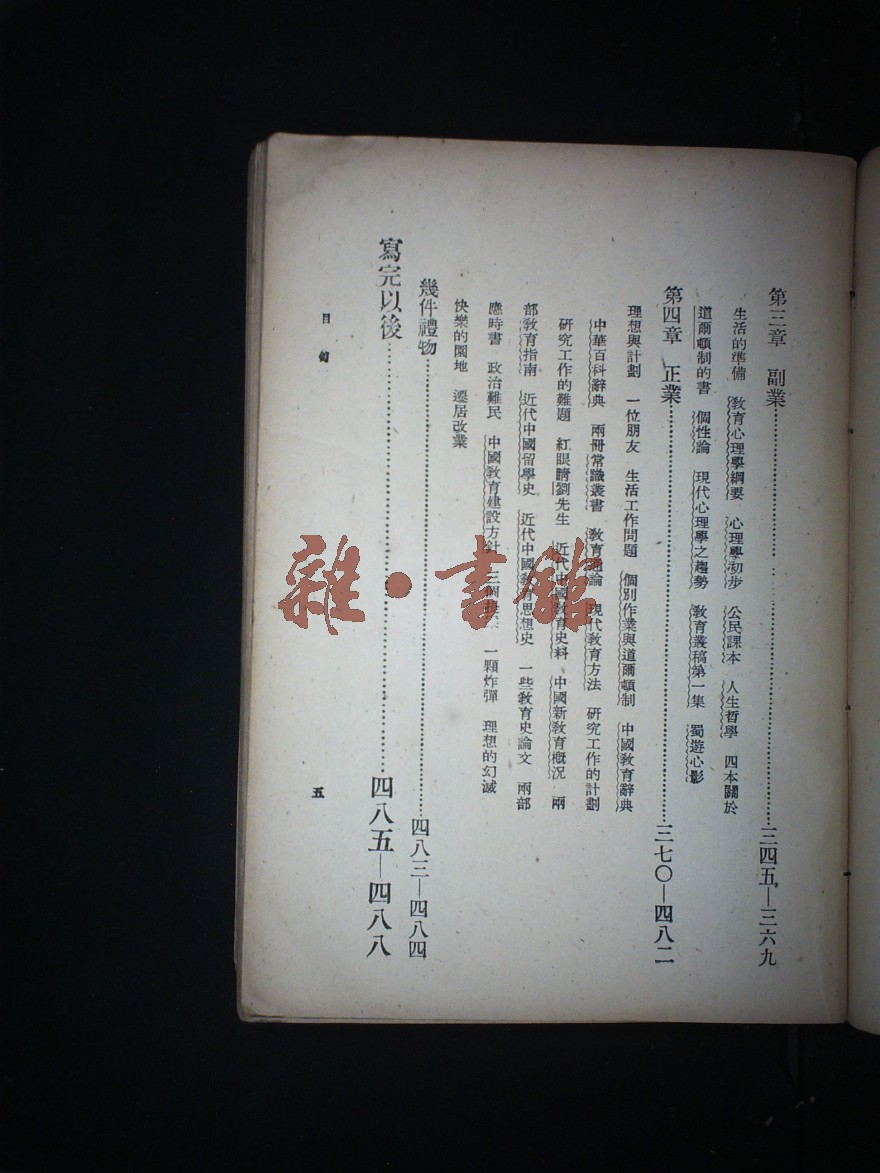 第三章　副業……………………三四五—三六九
生活的準備　教育心理學綱要　心理學初步　公民課本　人生哲學　四本關於
道爾頓制的書　個性論　現代心理學之趨勢　教育叢稿第一集　蜀遊心影
第四章　正業……………………三七〇—四八二
理想與計劃　一位朋友　生活工作問題　個別作業與道爾頓制　中國教育辭典
中華百科辭典　兩冊常識叢書　教育通論　現代教育方法　研究工作的計劃
研究工作的難題　紅眼睛劉先生　近代中國教育史料　中國新教育概況　兩
部教育指南　近代中國留學史　近代中國教育思想史　一些教育史論文　兩部
應時書　政治難民　中國教育建設方針　三個　一顆炸彈　理想的幻滅
快樂的園地　遷居改業
幾件禮物……………………四八三—四八四
寫完以後……………………四八五—四八八
目
五
雜·書館